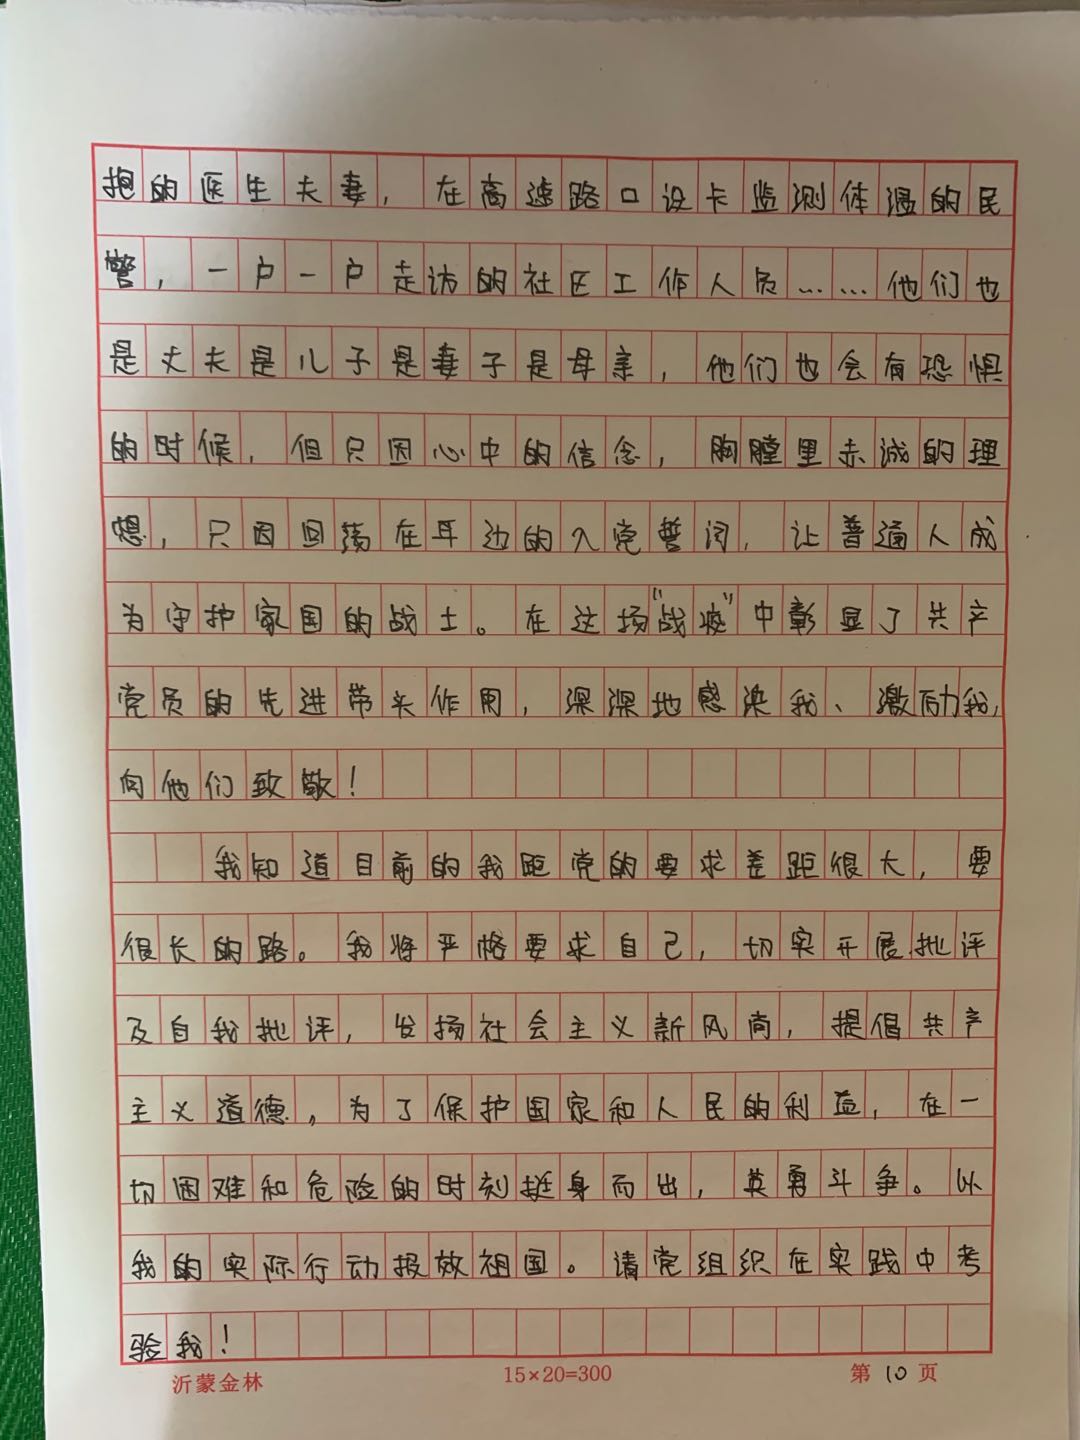 抱的医生夫妻，在高速路口设卡监测体温的民
警，一户一户走访的社区工作人员……他们也
是丈夫是儿子是妻子是母亲，他们也会有恐惧
的时候，但只因心中的信念，胸膛里赤诚的理
想，只因回荡在耳边的入党誓词，让普通人成
为守护家国的战士。在这场“战疫”中彰显了共产
党员的先进带头作用，深深地感染我、激励我，
向他们致敬！
我知道目前的我距党的要求差距很大，要
很长的路。我将严格要求自己，切实开展批评
及自我批评，发扬社会主义新风尚，提倡共产
主义道德，为了保护国家和人民的利益，在一
切困难和危险的时刻挺身而出，英勇斗争。以
我的实际行动报效祖国。请党组织在实践中考
验我！
沂蒙金林 15×20=300 第 10 页